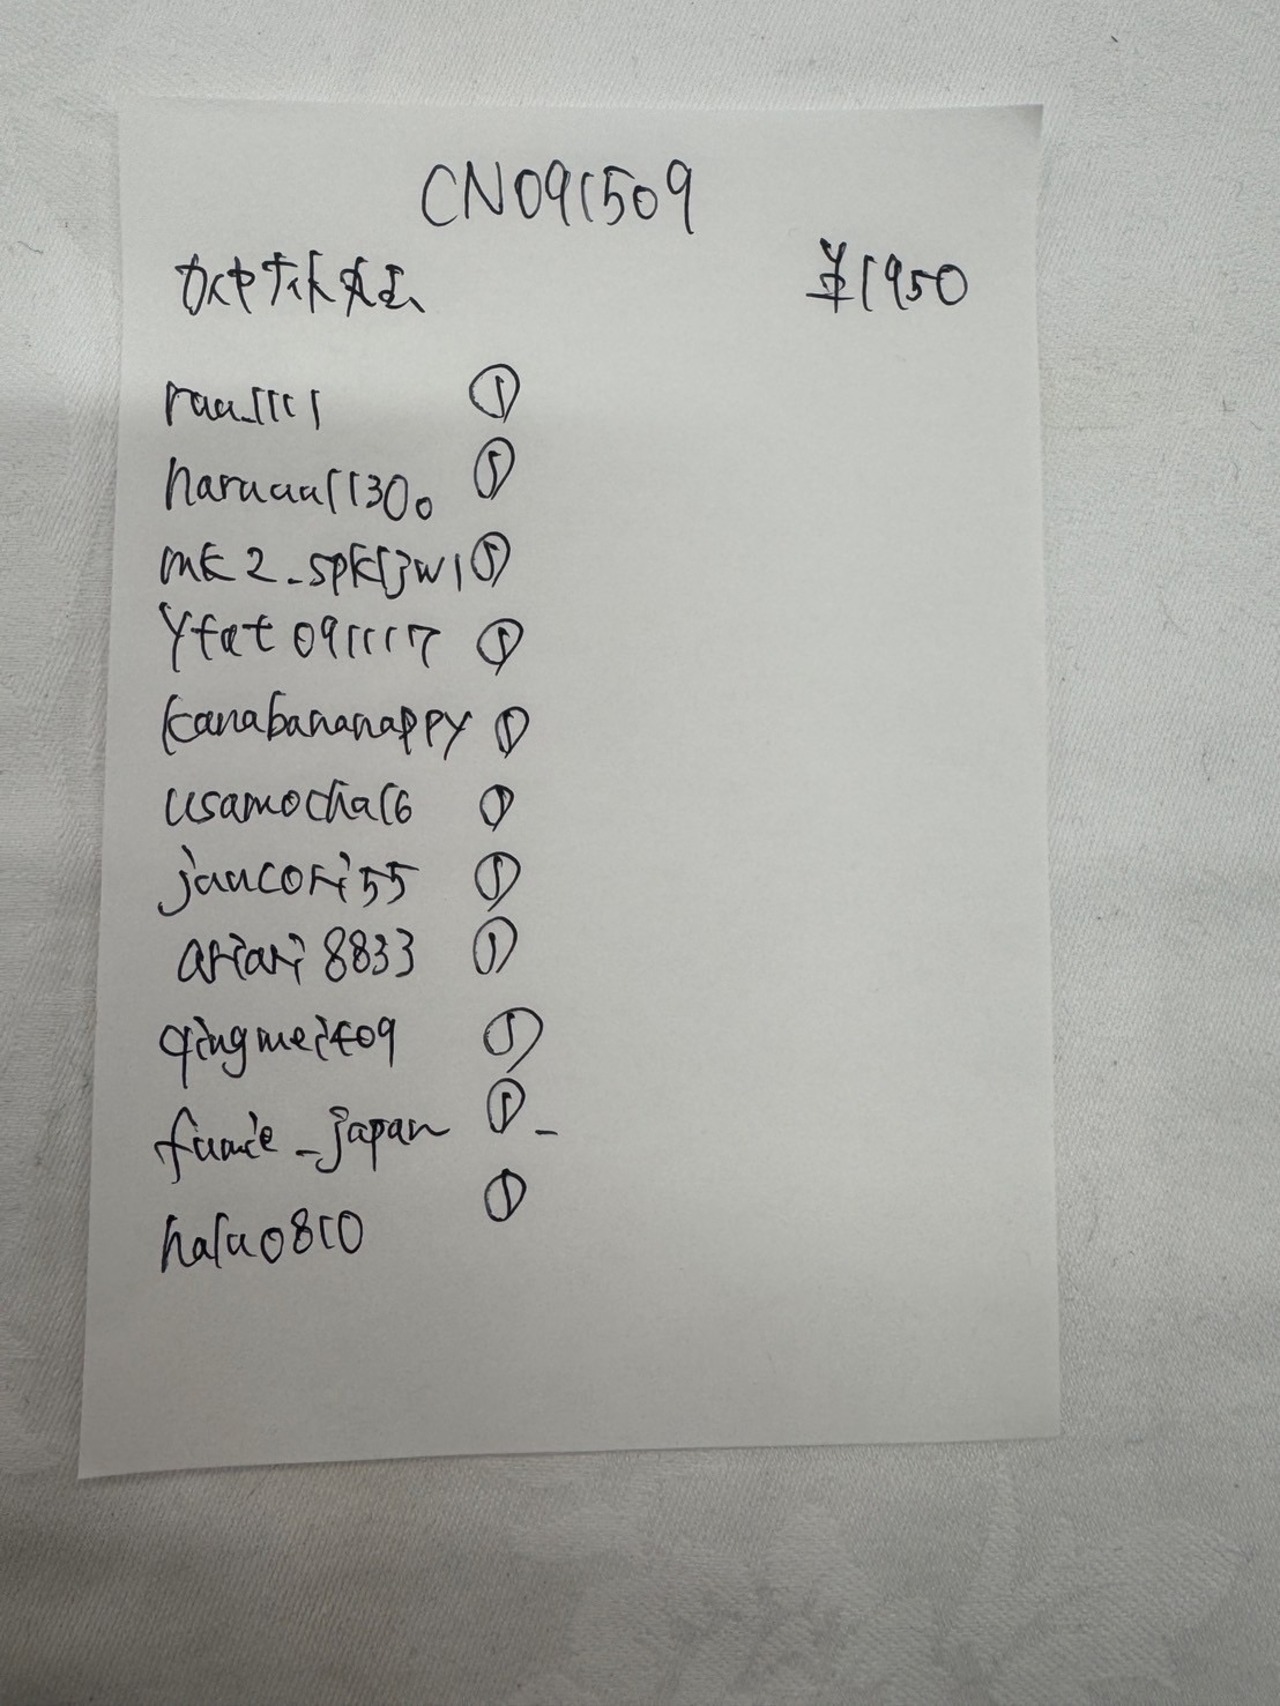 CN091509
¥1950
raa_1111 ①
haruaa1130o ①
mk2_spk13w1 ①
yfat091117 ①
kanabananappy ①
usamocha16 ①
jaucori55 ①
ariari8833 ①
qingmei409 ①
fumie_japan ① _
halu0810 ①